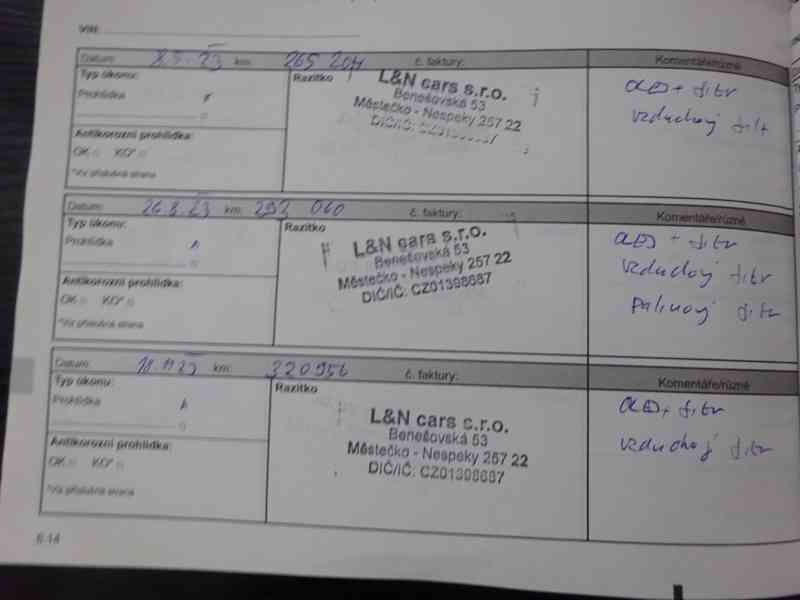 VIN:
Datum: 8.5.23 km: 265 204 č. faktury: Komentáře/různé
Typ úkonu: Razítko
Prohlídka
L&N cars s.r.o.
Benešovská 53
Městečko - Nespeky 257 22
DIČ/IČ:
olej + filtr
vzduchový filt
Antikorozní prohlídka:
OK KO*
*Viz příslušná strana
Datum: 26.8.23 km: 292 060 č. faktury: Komentáře/různé
Typ úkonu: Razítko
Prohlídka
L&N cars s.r.o.
Benešovská 53
Městečko - Nespeky 257 22
DIČ/IČ: CZ01398687
olej + filtr
vzduchový filtr
Palivový filtr
Antikorozní prohlídka:
OK KO*
*Viz příslušná strana
Datum: km: 320956 č. faktury: Komentáře/různé
Typ úkonu: Razítko
Prohlídka
L&N cars s.r.o.
Benešovská 53
Městečko - Nespeky 257 22
DIČ/IČ: CZ01398687
olej + filtr
vzduchový filtr
Antikorozní prohlídka:
OK KO*
*Viz příslušná strana
6.14